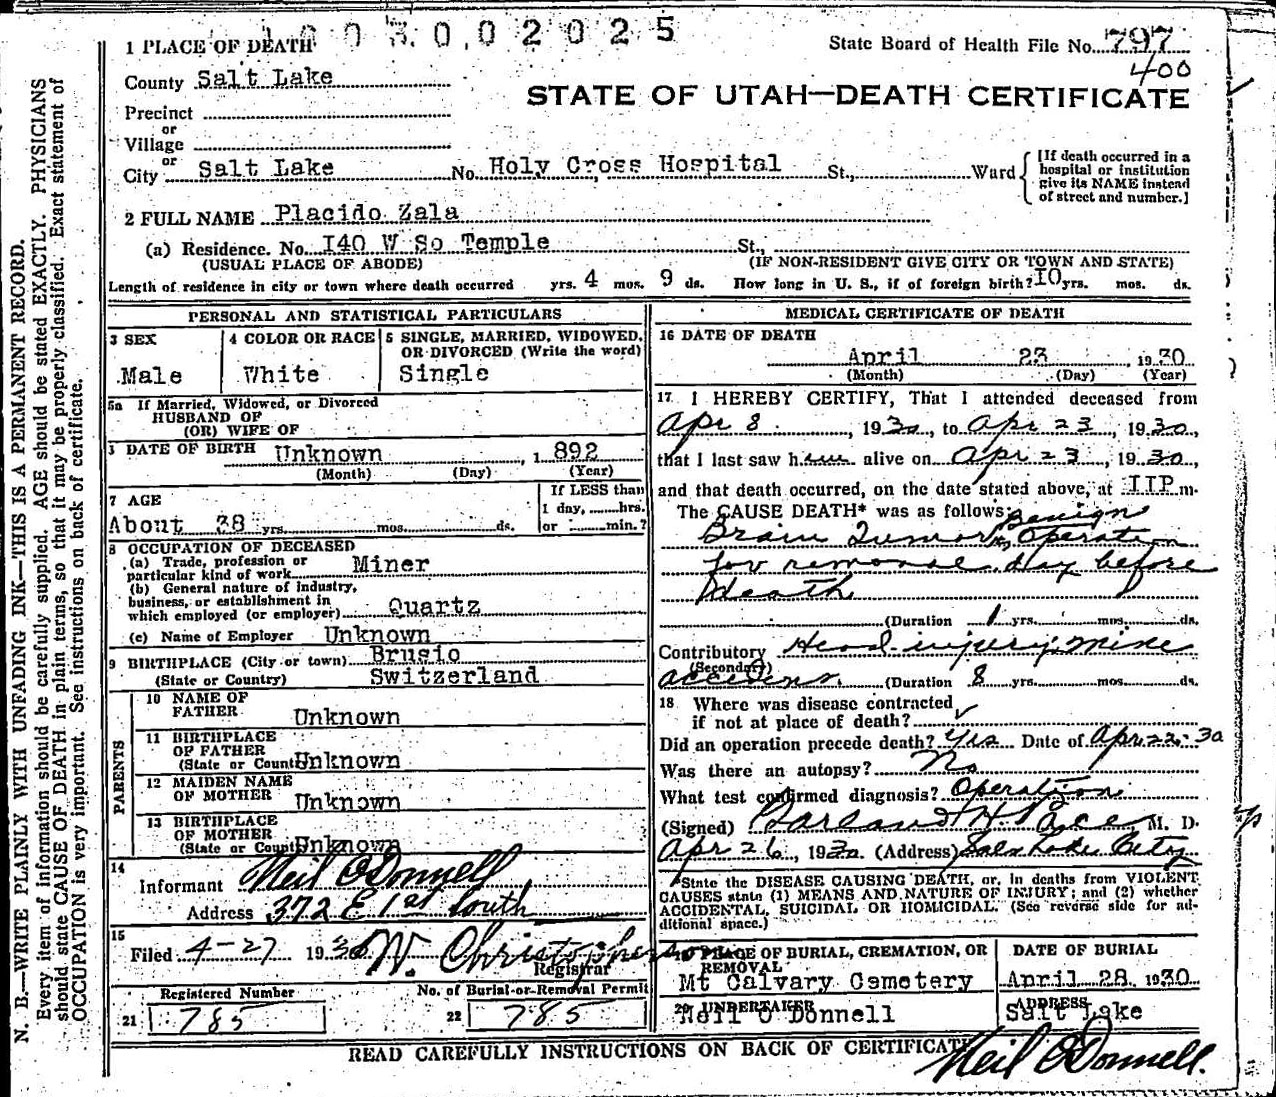 1003002025
1 PLACE OF DEATH
State Board of Health File No. 797
400
County Salt Lake
STATE OF UTAH—DEATH CERTIFICATE
Precinct
or
Village
or
City Salt Lake No. Holy Cross Hospital St., Ward
[If death occurred in a hospital or institution give its NAME instead of street and number.]
2 FULL NAME Placido Zala
(a) Residence. No. I40 W So Temple St.,
(USUAL PLACE OF ABODE) (IF NON-RESIDENT GIVE CITY OR TOWN AND STATE)
Length of residence in city or town where death occurred yrs. 4 mos. 9 ds. How long in U. S., if of foreign birth? IO yrs. mos. ds.
PERSONAL AND STATISTICAL PARTICULARS
3 SEX
Male
4 COLOR OR RACE
White
5 SINGLE, MARRIED, WIDOWED, OR DIVORCED (Write the word)
Single
5a If Married, Widowed, or Divorced
HUSBAND OF
(OR) WIFE OF
DATE OF BIRTH Unknown , 1 892
(Month) (Day) (Year)
7 AGE
About 38 yrs. mos. ds.
If LESS than
1 day, hrs.
or min.?
8 OCCUPATION OF DECEASED
(a) Trade, profession or
particular kind of work Miner
(b) General nature of industry,
business, or establishment in
which employed (or employer) Quartz
(c) Name of Employer Unknown
9 BIRTHPLACE (City or town) Brusio
(State or Country) Switzerland
PARENTS
10 NAME OF
FATHER Unknown
11 BIRTHPLACE
OF FATHER
(State or Count Unknown
12 MAIDEN NAME
OF MOTHER Unknown
13 BIRTHPLACE
OF MOTHER
(State or Count Unknown
14
Informant Neil O'Donnell
Address 372 E 1st South
15
Filed 4-27 1930 W. Christopherson
Registrar
Registered Number
21 785
No. of Burial or Removal Permit
22 785
MEDICAL CERTIFICATE OF DEATH
16 DATE OF DEATH
April 23 1930
(Month) (Day) (Year)
17 I HEREBY CERTIFY, That I attended deceased from
Apr 8, 1930, to Apr 23, 1930,
that I last saw him alive on Apr 23, 1930,
and that death occurred, on the date stated above, at IIP m.
The CAUSE DEATH* was as follows:
Benign
Brain Tumor, Operation
for removal day before
death
(Duration 1 yrs. mos. ds.
Contributory Head injury: mine
(Secondary)
accident. (Duration 8 yrs. mos. ds.
18 Where was disease contracted
if not at place of death?
Did an operation precede death? Yes Date of Apr 22-30
Was there an autopsy? No
What test confirmed diagnosis? Operation
(Signed) Garland H. Pace M. D.
Apr 26, 1930. (Address) Salt Lake City
*State the DISEASE CAUSING DEATH, or, in deaths from VIOLENT
CAUSES state (1) MEANS AND NATURE OF INJURY; and (2) whether
ACCIDENTAL, SUICIDAL OR HOMICIDAL. (See reverse side for additional space.)
PLACE OF BURIAL, CREMATION, OR
REMOVAL
Mt Calvary Cemetery
DATE OF BURIAL
April 28 1930
20 UNDERTAKER
Neil O Donnell
ADDRESS
Salt Lake
READ CAREFULLY INSTRUCTIONS ON BACK OF CERTIFICATE
Neil O'Donnell.
N. B.—WRITE PLAINLY WITH UNFADING INK—THIS IS A PERMANENT RECORD.
Every item of information should be carefully supplied. AGE should be stated EXACTLY. PHYSICIANS
should state CAUSE OF DEATH in plain terms, so that it may be properly classified. Exact statement of
OCCUPATION is very important. See instructions on back of certificate.